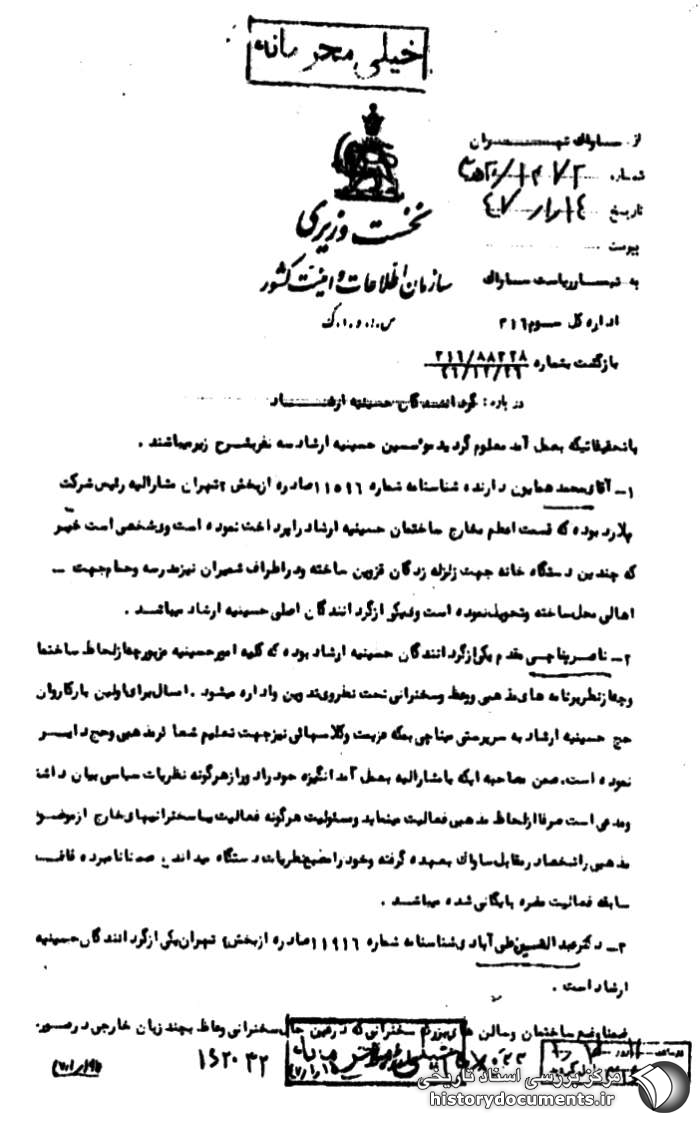 خیلی محرمانه
از ساواک تهران
شماره
تاریخ
پیوست
نخست وزیری
سازمان اطلاعات و امنیت کشور
به تیمسار ریاست ساواک
اداره کل سوم ۳۱۶
بازگشت بشماره
درباره: گردانندگان حسینیه ارشاد
با تحقیقاتیکه بعمل آمد معلوم گردید موسسین حسینیه ارشاد سه نفر بشرح زیر میباشند .
۱ـ آقای محمد همایون دارنده شناسنامه شماره ۱۱۵۹۶ صادره از بخش ۲ تهران مشارالیه رئیس شرکت
پلارد بوده که قسمت اعظم مخارج ساختمان حسینیه ارشاد را پرداخت نموده است وی شخصی است خیر
که چندین دستگاه خانه جهت زلزله زدگان قزوین ساخته و در اطراف شمیران نیز مدرسه و حمام جهت ـ
اهالی محل ساخته و تحویل نموده است و یکی از گردانندگان اصلی حسینیه ارشاد میباشد .
۲ـ ناصر میناچی مقدم یکی از گردانندگان حسینیه ارشاد بوده که کلیه امور حسینیه مزبور چه از لحاظ ساختما
و چه از نظر برنامه های مذهبی و وعظ و سخنرانی تحت نظر وی تدوین و اداره میشود . امسال برای اولین بار کاروان
حج حسینیه ارشاد به سرپرستی میناچی بمکه عزیمت و کلاسهائی نیز جهت تعلیم شعائر مذهبی و حج دایر
نموده است، ضمن مصاحبه ایکه با مشارالیه بعمل آمد انگیزه خود را دور از هرگونه نظریات سیاسی بیان داشته
و مدعی است صرفا از لحاظ مذهبی فعالیت مینماید و مسئولیت هرگونه فعالیت یا سخنرانیهای خارج از موضوع
مذهبی را شخصا در مقابل ساواک بعهده گرفته و خود را مطیع نظریات دستگاه میداند ضمنا نامبرده فاقد
سابقه فعالیت مضره بایگانی شده میباشد .
۳ـ دکتر عبدالحسین علی آبادی شناسنامه شماره ۱۱۹۱۶ صادره از بخش ٤ تهران یکی از گردانندگان حسینیه
ارشاد است .
ضمنا وضع ساختمان و سالن های بزرگ سخنرانی که در عین حال سخنرانی وعاظ بچند زبان خارجی در صور
خیلی محرمانه
مرکز بررسی اسناد تاریخی
historydocuments.ir